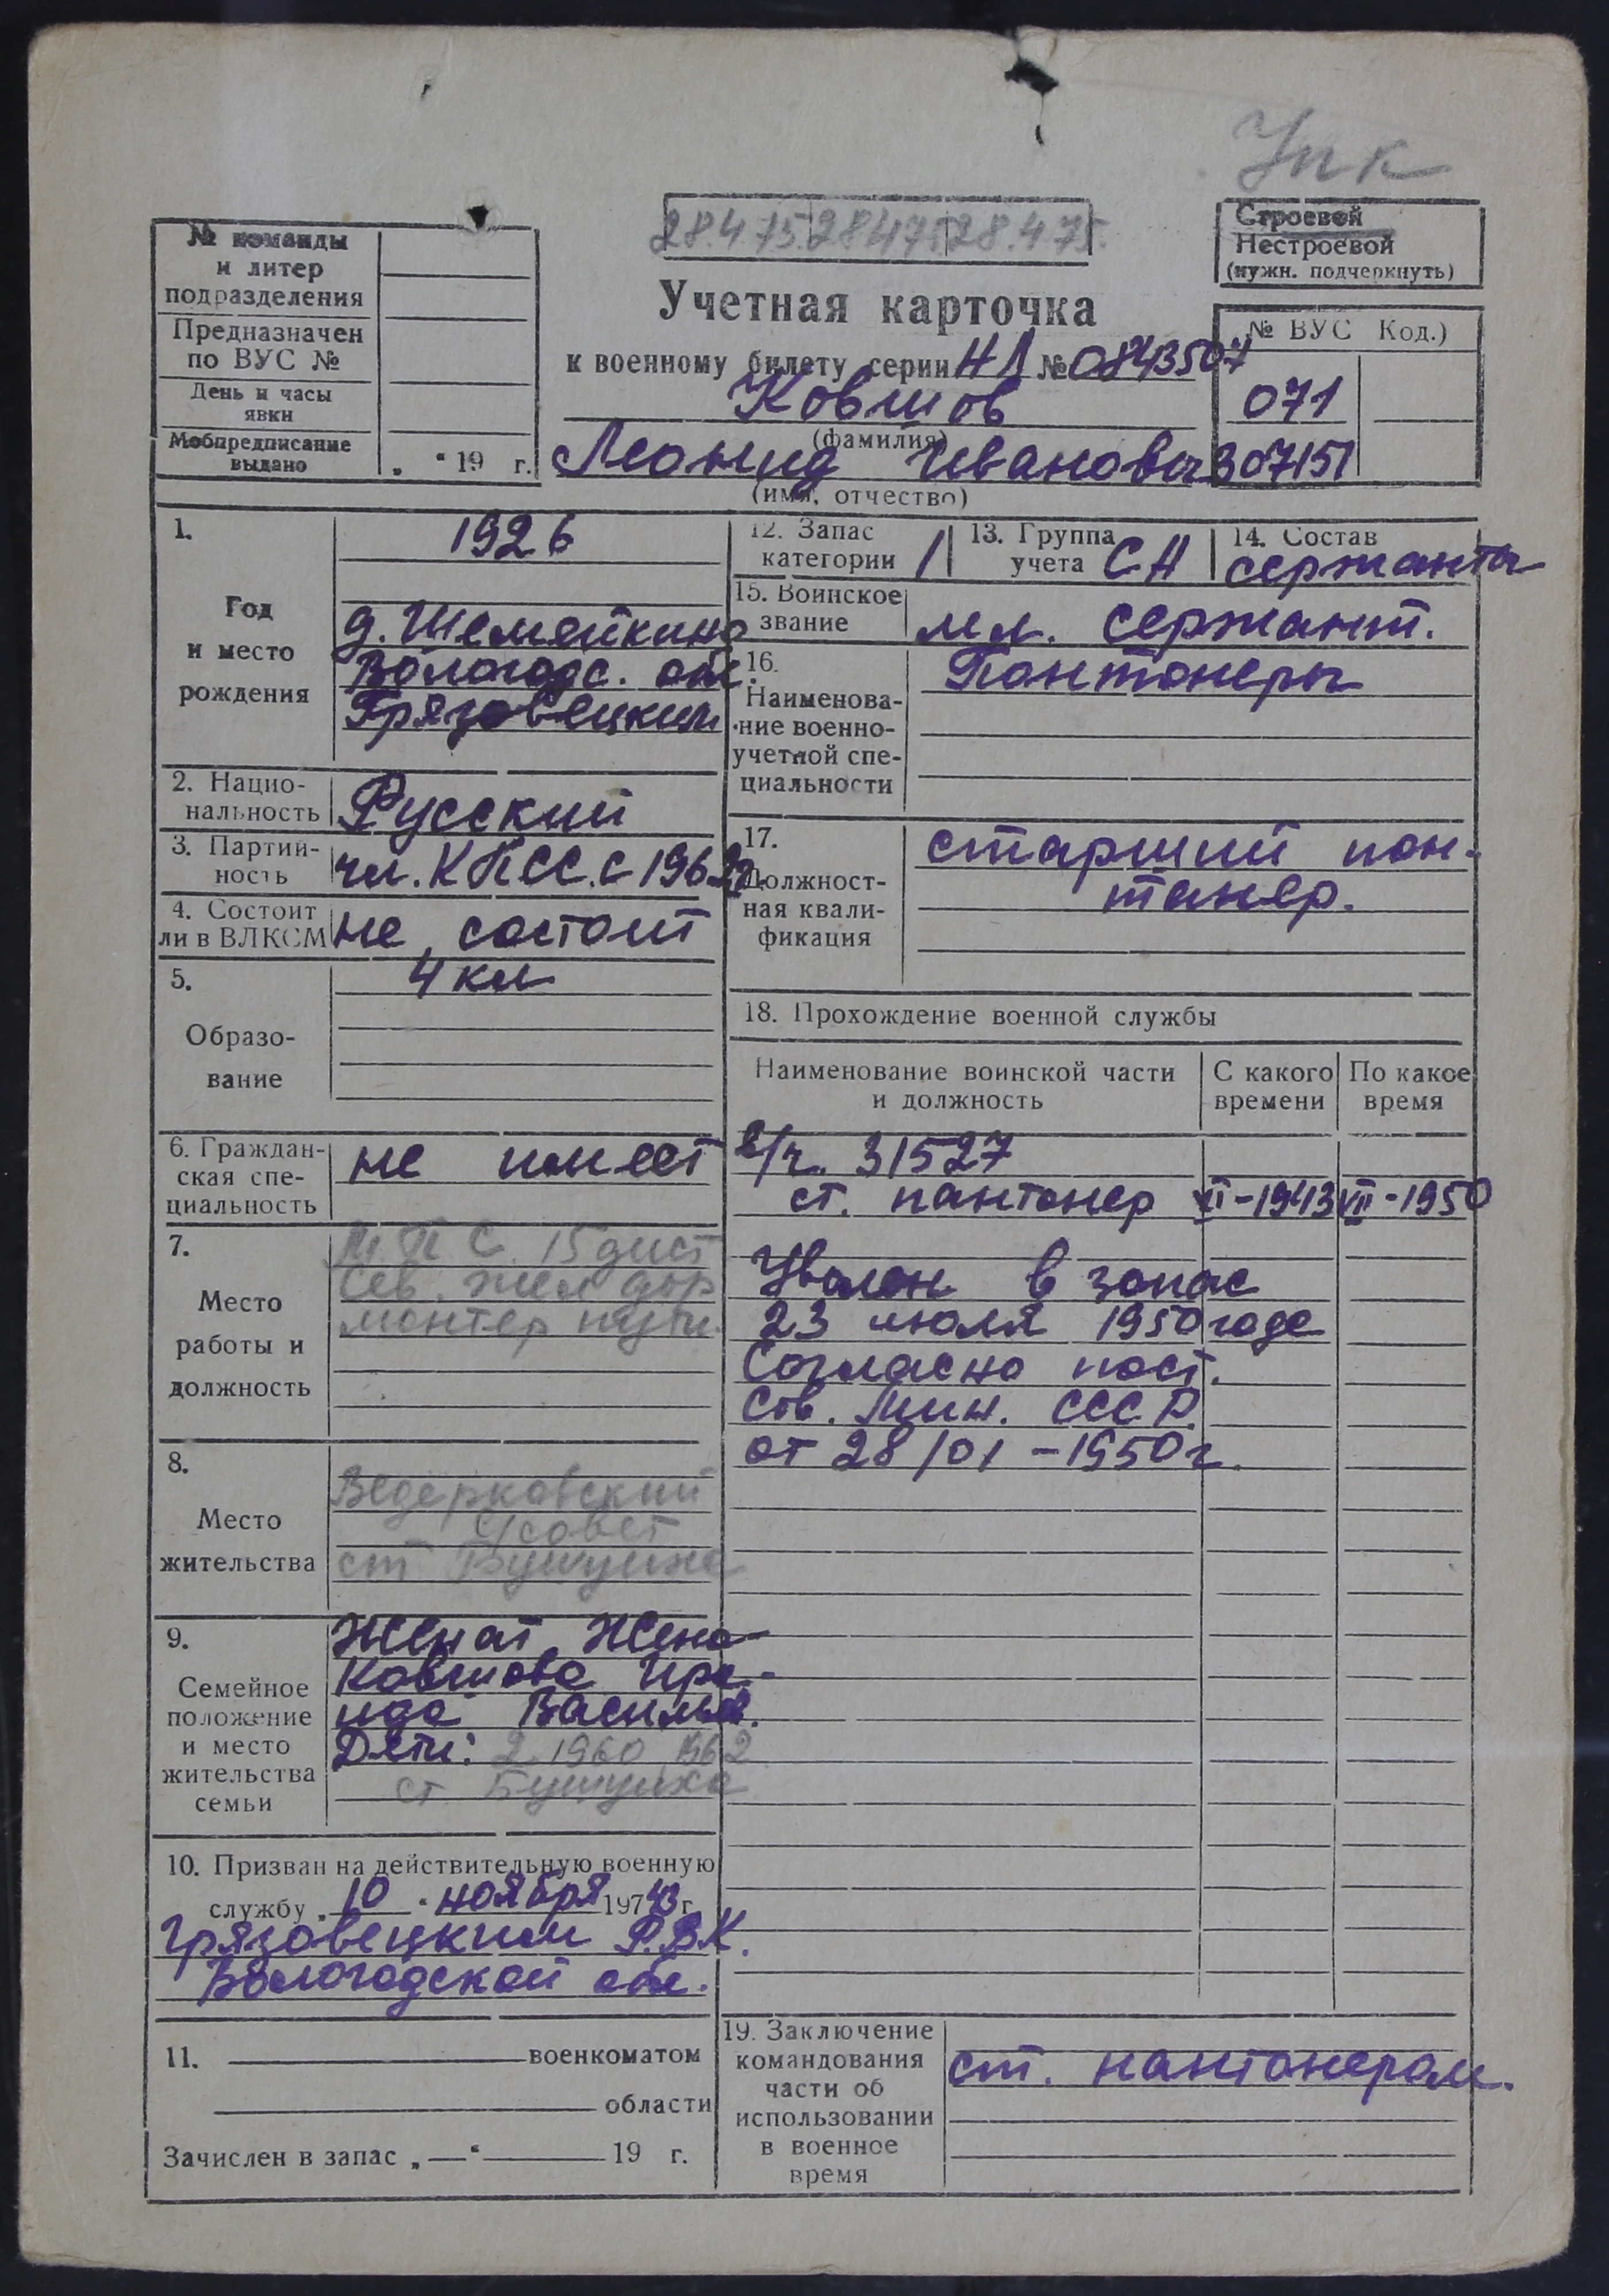 Упк
28.475 28475 28.475.
Строевой
Нестроевой
(нужн. подчеркнуть)
№ команды
и литер
подразделения
Предназначен
по ВУС №
День и часы
явки
Мобпредписание
выдано
„ “ 19 г.
Учетная карточка
к военному билету серии НЛ № 0843507
Ковшов
(фамилия)
Леонид Иванович
(имя, отчество)
№ ВУС Код.)
071
307151
1.
Год
и место
рождения
1926
д. Шемейкино
Вологодс. обл.
Грязовецким
2. Нацио-
нальность
Русский
3. Партий-
ность
чл. КПСС. с 1962г.
4. Состоит
ли в ВЛКСМ
не состоит
5.
Образо-
вание
4 кл
6. Граждан-
ская спе-
циальность
не имеет
7.
Место
работы и
должность
М.П С. 15 дист
Сев. жел дор
монтер пути.
8.
Место
жительства
Ведерковский
с/совет
ст Бушуиха
9.
Семейное
положение
и место
жительства
семьи
Женат. Жена
Ковшова Ира-
ида Васильев.
Дети: 2 1960 1962
ст Бушуиха
10. Призван на действительную военную
службу „10“ ноября 1943 г.
Грязовецким Р.В.К.
Вологодской обл.
11. военкоматом
области
Зачислен в запас „—“ 19 г.
12. Запас
категории
1
13. Группа
учета СА
14. Состав
сержанты
15. Воинское
звание
мл. сержант.
16.
Наименова-
ние военно-
учетной спе-
циальности
Понтонеры
17.
Должност-
ная квали-
фикация
старший пон-
танер.
18. Прохождение военной службы
Наименование воинской части
и должность
С какого
времени
По какое
время
в/ч. 31527
ст. пантонер XI-1943 VII-1950
Уволен в запас
23 июля 1950 года
Согласно пост.
Сов. Мин. СССР.
от 28/01-1950г.
19. Заключение
командования
части об
использовании
в военное
время
ст. пантонером.